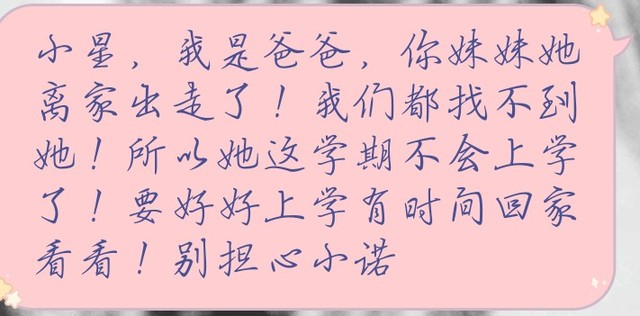 小星，我是爸爸，你妹妹她
离家出走了！我们都找不到
她！所以她这学期不会上学
了！要好好上学有时间回家
看看！别担心小诺